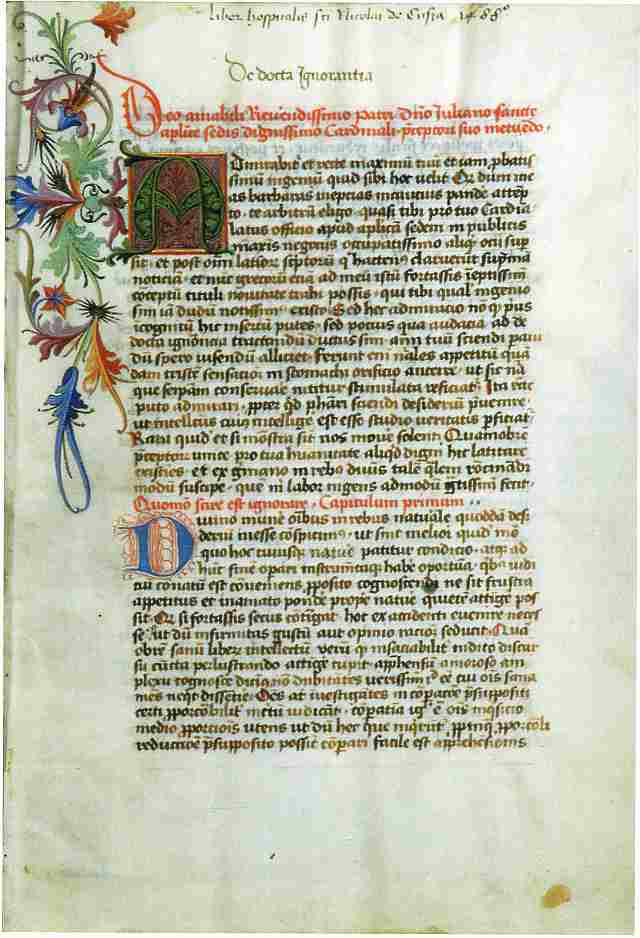 liber hospitalis scti Nicolai de Cusa 1488
De docta Ignorantia
Deo amabili Reverendissimo Patri dno Iuliano sancte
aplice sedis dignissimo Cardinali pceptori suo metuedo
Admirabit et recte maximu tuu et iam pbatis
simu ingeniu quid sibi hoc velit Qr dum me
as barbaras ineptias incautius pande attep
to te arbitru eligo quasi tibi pro tuo Cardia
latus officio apud aplica sedem in publicis
maxis negociis occupatissimo aliqd ocii sup
sit et post oim latior scptoru q hacten claruerut supma
noticia et nuc grecoru etia ad meu istu fortassis ieptissim
coceptu tituli novitate trahi possis qui tibi qual ingenio
sim ia dudu notissim existo Sed hec admiracio no q pus
incognitu hic insertu putes sed pocius qua audacia ad de
docta ignoncia tractandu ductus sim aim tuu sciendi paui
du spero visendu alliciet Ferunt eni nales appetitu qua
dam triste sensacio in stomachi orificio anteire ut sic na
que seipam conservare nititur stimulata reficiat Ita recte
puto admirari ppter qd phari sciendi desideriu pvenire
ut intellectus cuius intellige est esse studio veritatis pficiat
Rara quid et si monstra sit nos move solent Quamobre
pceptor unice pro tua huanitate aliqd digni hic latitare
existies et ex gmano in rebo divis tale qlem rocinadi
modu suscipe que m labor ingens admodu gtissim fecit
Quomo scire est ignorare Capitulum primum
Divino mune oibus in rebus natuale quodda des
deriu inesse cospicimus ut sint melior quid mo
quo hoc cuiusq nature patitur condicio atq ad
huc fine opari instrumtaq habe oportua qba iudi
ciu cogatu est conveniens pposito cognoscendi ne sit frustra
appetitus et in amato ponde prope nature quiete attige pos
sit Qr si fortassis secus cotigat hoc ex accidenti evenire neces
se ut du infirmitas gustu aut opinio racioe seducit Qua
obre sanu liber intellectu veru q insaciabilit indito discur
su cucta perlustrando attige cupit apphensu amoroso am
plexu cognosce dicim no dubitates verissim ee cui ois sana
mes neqt dissetire Oes at ivestigates in copatoe psuppositi
certi pporcobilit incertu iudicat copatia igr e ois inqsicio
medio pporciois utens ut du hec que inqrut ppinq pporcoli
reductioe psupposito possit copari facile est apprehesionis